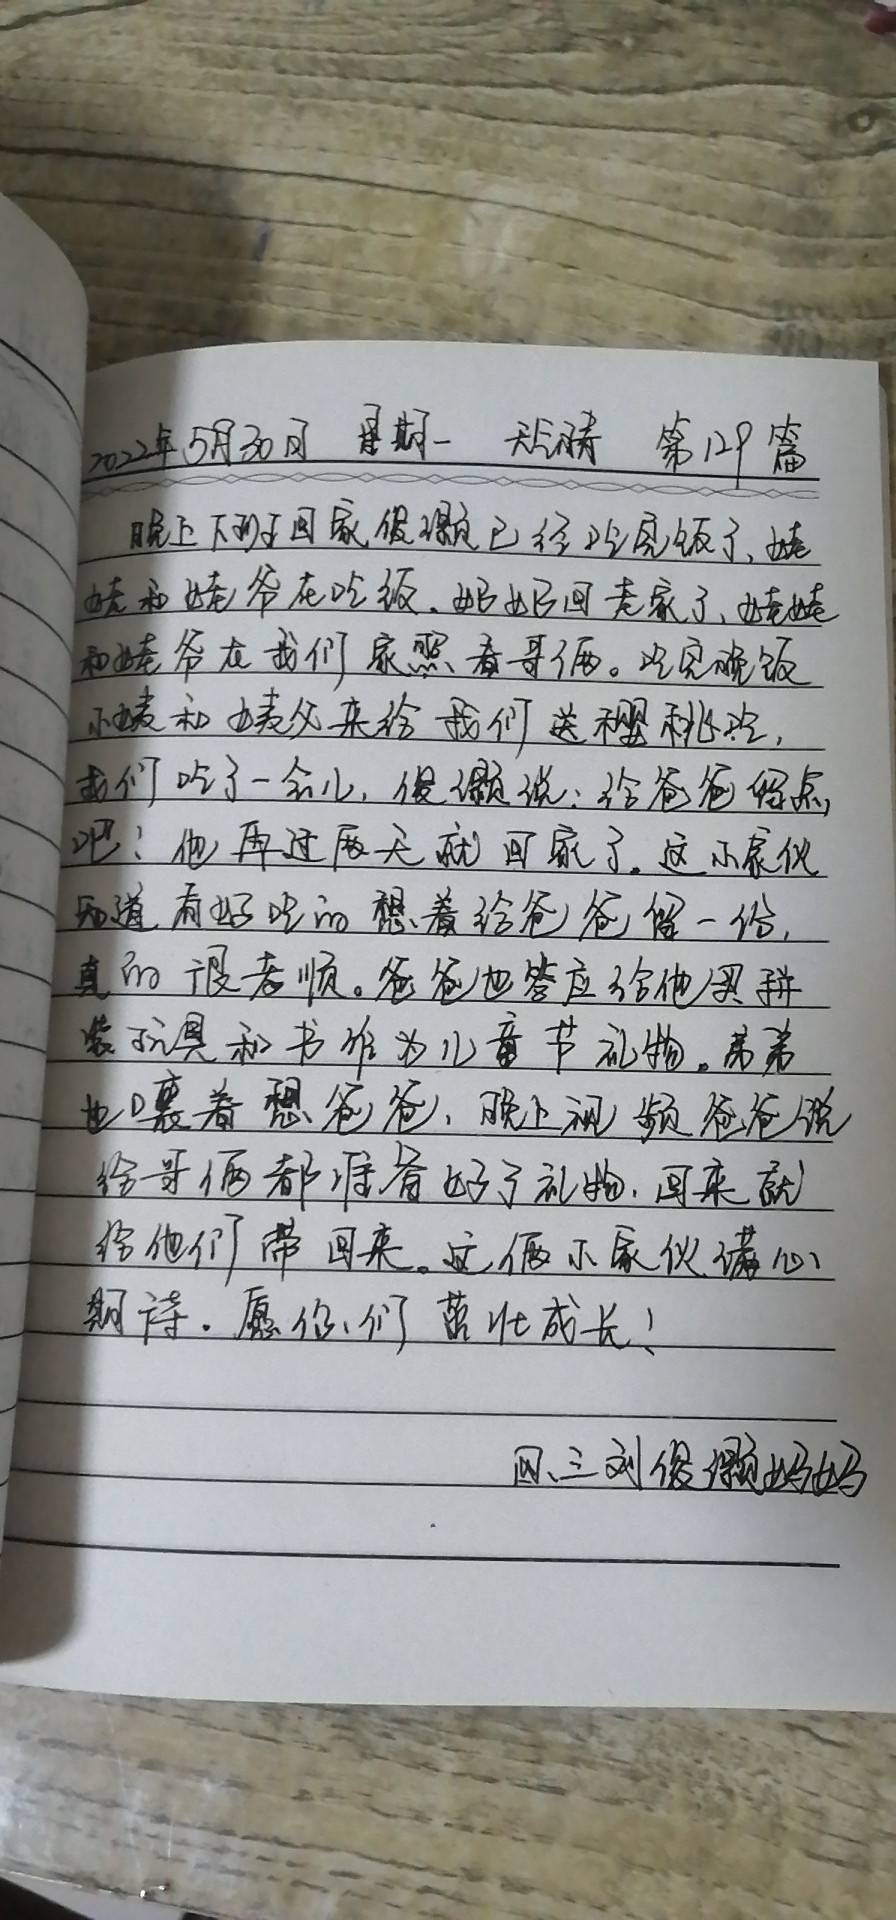 2022年5月30日 星期一 天气晴 第129篇
晚上下班回家俊灏已经吃完饭了、姥
姥和姥爷在吃饭。奶奶回老家了、姥姥
和姥爷在我们家照看哥俩。吃完晚饭
小姨和姨父来给我们送樱桃吃,
我们吃了一会儿,俊灏说:给爸爸留点
吧!他再过两天就回家了。这小家伙
知道有好吃的想着给爸爸留一份,
真的很孝顺。爸爸也答应给他买拼
装玩具和书作为儿童节礼物。弟弟
也嚷着想爸爸、晚上视频爸爸说
给哥俩都准备好了礼物,回来就
给他们带回来。这俩小家伙满心
期待。愿你们茁壮成长!
四、三刘俊灏妈妈